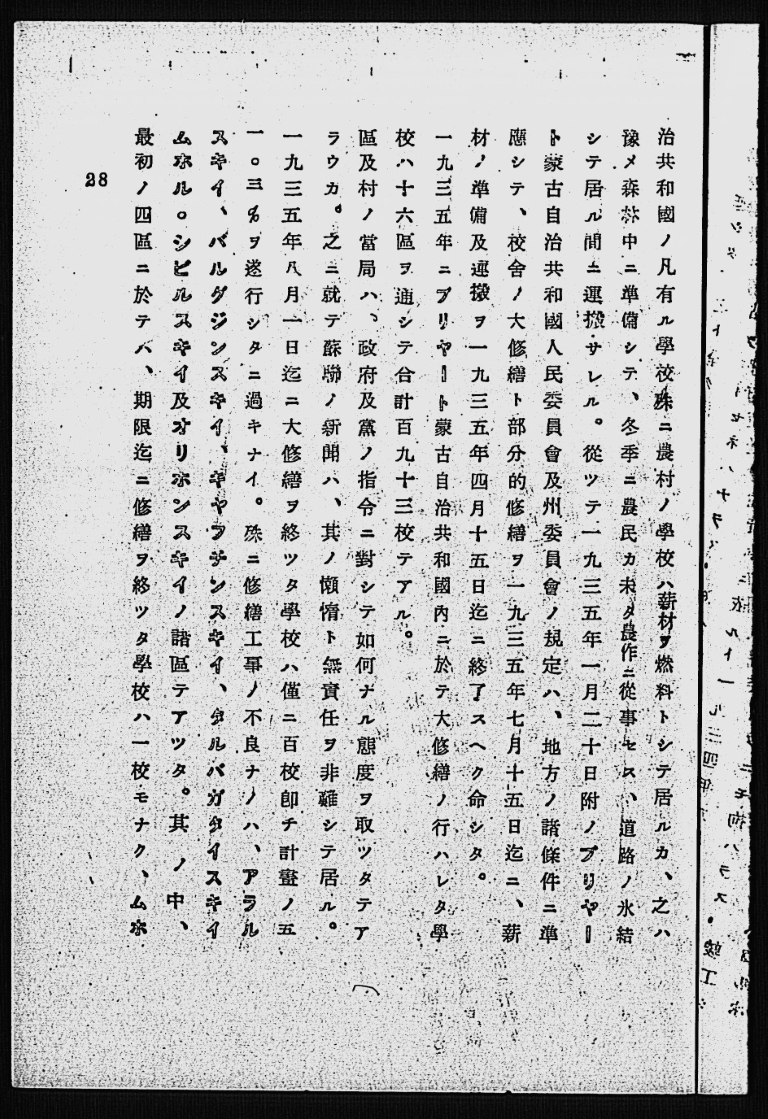 治共和國ノ凡有ル學校殊ニ農村ノ學校ハ薪材ヲ燃料トシテ居ルカ、之ハ
豫メ森林中ニ準備シテ、冬季ニ農民カ未タ農作ニ從事セス、道路ノ氷結
シテ居ル間ニ運搬サレル。從ツテ一九三五年一月二十日附ノブリヤー
ト蒙古自治共和國人民委員會及州委員會ノ規定ハ、地方ノ諸條件ニ準
應シテ、校舍ノ大修繕ト部分的修繕ヲ一九三五年七月十五日迄ニ、薪
材ノ準備及運搬ヲ一九三五年四月十五日迄ニ終了スヘク命シタ。
一九三五年ニブリヤート蒙古自治共和國內ニ於テ大修繕ノ行ハレタ學
校ハ十六區ヲ通シテ合計百九十三校テアル。
區及村ノ當局ハ、政府及黨ノ指令ニ對シテ如何ナル態度ヲ取ツタテア
ラウカ。之ニ就テ蘇聯ノ新聞ハ、其ノ懶惰ト無責任ヲ非難シテ居ル。
一九三五年八月一日迄ニ大修繕ヲ終ツタ學校ハ僅ニ百校卽チ計畫ノ五
一。三％ヲ遂行シタニ過キナイ。殊ニ修繕工事ノ不良ナノハ、アラル
スキイ、バルグジンスキイ、キヤフチンスキイ、タルバガタイスキイ
ムホル。シビルスキイ及オリホンスキイノ諸區テアツタ。其ノ中、
最初ノ四區ニ於テハ、期限迄ニ修繕ヲ終ツタ學校ハ一校モナク、ムホ
28